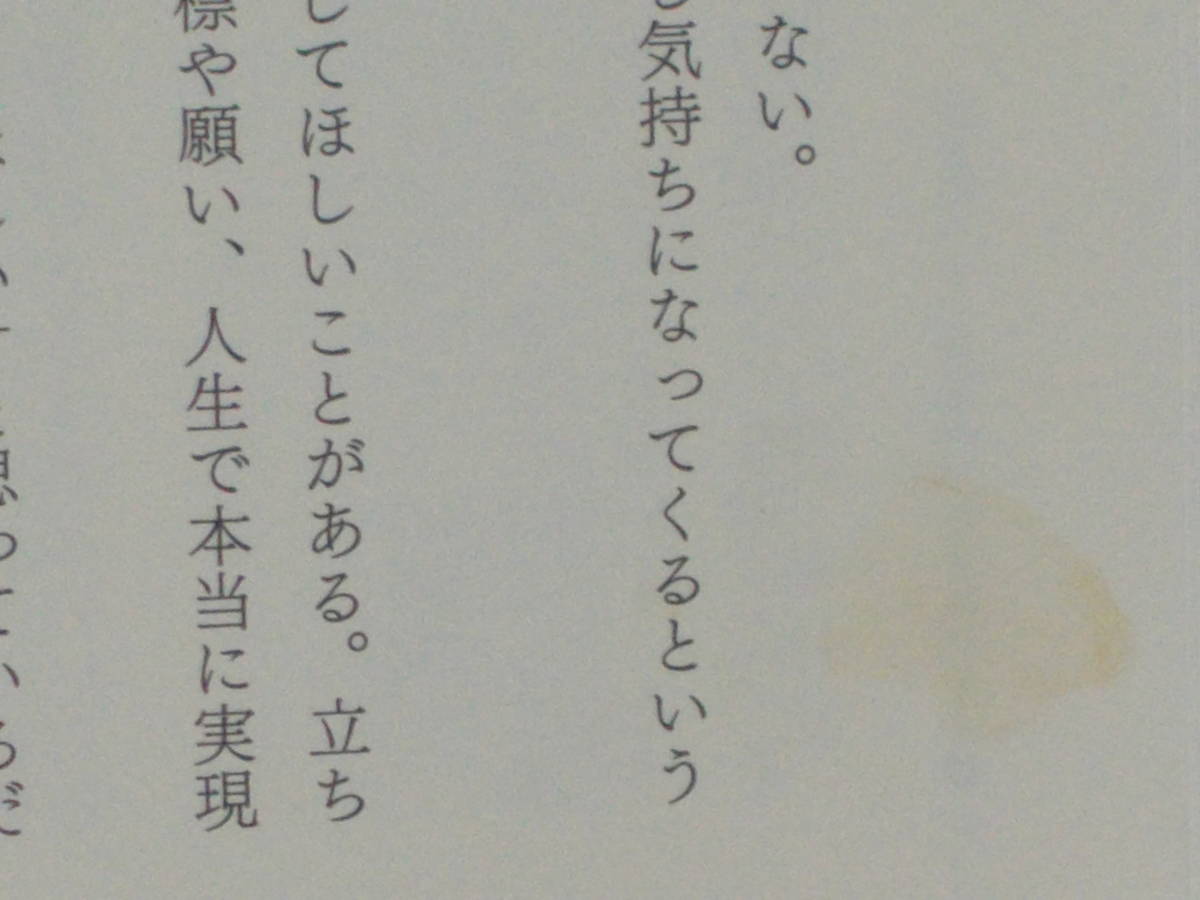 ない。
気持ちになってくるという
してほしいことがある。立ち
標や願い、人生で本当に実現